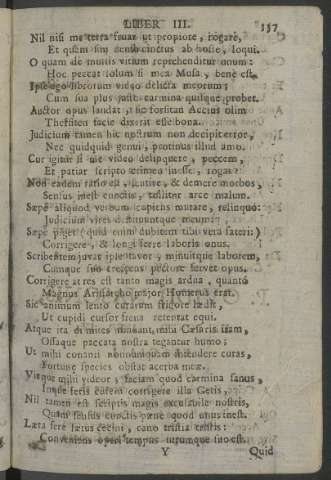 LIBER III. 337
Nil nisi me terra fruar ut propiore, rogare,
Et quam sim denso cinctus ab hoste, loqui.
O quam de multis vitium reprehenditur unum:
Hoc peccat solum si mea Musa, bene est.
Ipse ego librorum video delicta meorum;
Cum sua plus justo carmina quisque probet.
Auctor opus laudat: sic forsitan Accius olim
Thersiten facie dixerit esse bona.
Judicium tamen hic nostrum non decipit error,
Nec quidquid genui, protinus illud amo.
Cur igitur si me video delinquere, peccem,
Et patiar scripto crimen inesse, rogas?
Non eadem ratio est, sentire, & demere morbos,
Sensus inest cunctis, tollitur arte malum.
Sæpe aliquod verbum cupiens mutare, relinquo:
Judicium vires destituuntque meum:
Sæpe piget (quid enim dubitem tibi vera fateri:)
Corrigere, & longi ferre laboris onus.
Scribentem juvat ipse favor, minuitque laborem,
Cumque suo crescens pectore fervet opus.
Corrigere at res est tanto magis ardua, quanto
Magnus Aristarcho major Homerus erat.
Sic animum lento curarum frigore lædit,
Ut cupidi cursor frena retentat equi.
Atque ita di mites minuant mihi Cæsaris iram,
Ossaque paccata nostra tegantur humo;
Ut mihi conanti nonnunquam intendere curas,
Fortunæ species obstat acerba meæ.
Vixque mihi videor, faciam quod carmina sanus,
Inque feris curem corrigere illa Getis.
Nil tamen est scriptis magis excusabile nostris,
Quam sensus cunctis pæne quod unus inest.
Læta fere lætus cecini, cano tristia tristis:
Conveniens operi tempus utrumque suo est.
Y Quid